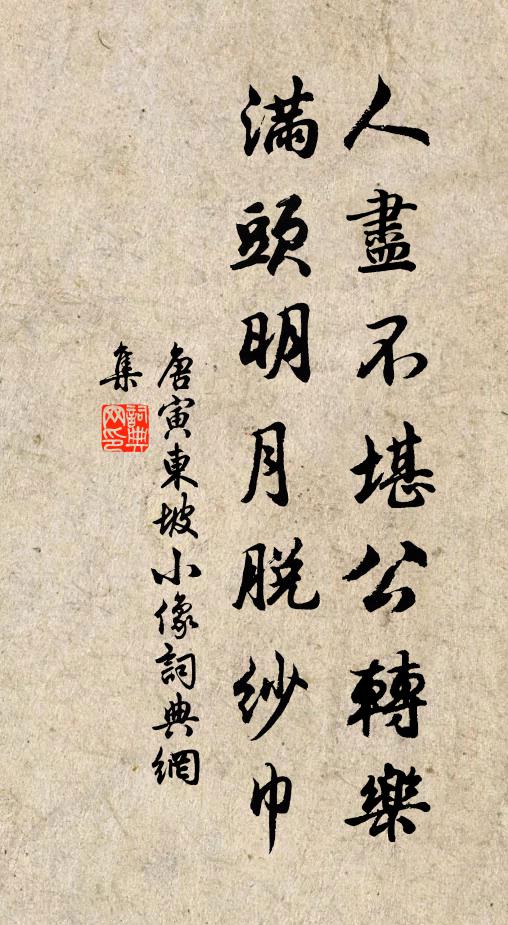 人盡不堪公轉樂
滿頭明月脫紗巾
唐寅東坡小像詞典網
集
詞典網印